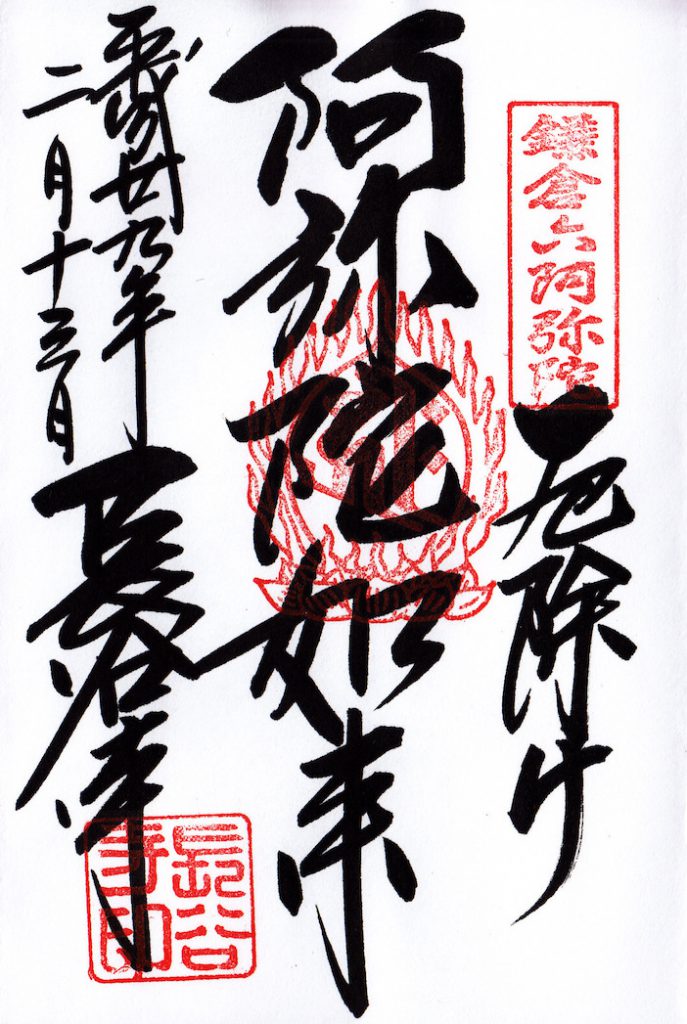 鎌倉六阿弥陀
厄除け
阿弥陀如来
平成廿九年
二月十三日
長谷寺
長谷寺印